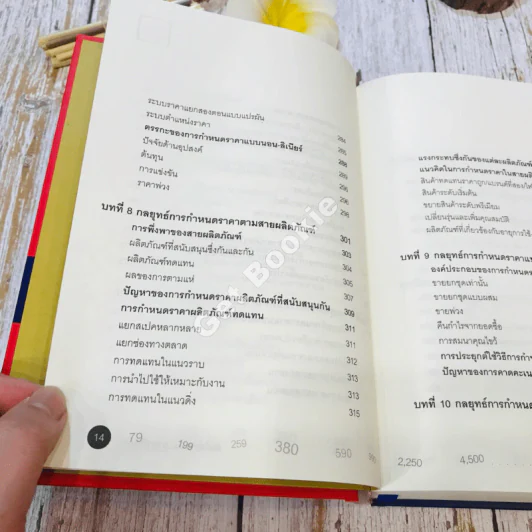 ระบบราคาแยกสองตอนแบบแปรผัน 284
ระบบตำแหน่งราคา 285
ตรรกะของการกำหนดราคาแบบนอน-ลิเนียร์ 288
ปัจจัยด้านอุปสงค์ 288
ต้นทุน 295
การแข่งขัน 296
ราคาพ่วง 296
บทที่ 8 กลยุทธ์การกำหนดราคาตามสายผลิตภัณฑ์ 301
การพึ่งพาของสายผลิตภัณฑ์ 303
ผลิตภัณฑ์ที่สนับสนุนซึ่งกันและกัน 303
ผลิตภัณฑ์ทดแทน 305
ผลของการตามแห่ 305
ปัญหาของการกำหนดราคาผลิตภัณฑ์ที่สนับสนุนกัน 307
การกำหนดราคาผลิตภัณฑ์ทดแทน 309
แยกสเปคหลากหลาย 311
แยกช่องทางตลาด 311
การทดแทนในแนวราบ 313
การนำไปใช้ให้เหมาะกับงาน 313
การทดแทนในแนวดิ่ง 315
14 79 199 259 380 590
แรงกระทบซึ่งกันของแต่ละผลิตภัณฑ์
แนวคิดในการกำหนดราคาในสายผลิต
สินค้าทดแทนราคาถูกแบรนด์ที่สอง
สินค้าระดับเริ่มต้น
ขยายสินค้าระดับพรีเมียม
เปลี่ยนรุ่นและเพิ่มคุณสมบัติ
ผลิตภัณฑ์ที่เกี่ยวข้องกับอายุการใช้
บทที่ 9 กลยุทธ์การกำหนดราคา
องค์ประกอบของการกำหนด
ขายยกชุดเท่านั้น
ขายยกชุดแบบผสม
ขายพ่วง
คืนกำไรจากยอดซื้อ
การสมนาคุณไขว้
การประยุกต์ใช้วิธีการกำ
ปัญหาของการคาดคะเน
บทที่ 10 กลยุทธ์การกำหนด
2,250 4,500
Get Bookie